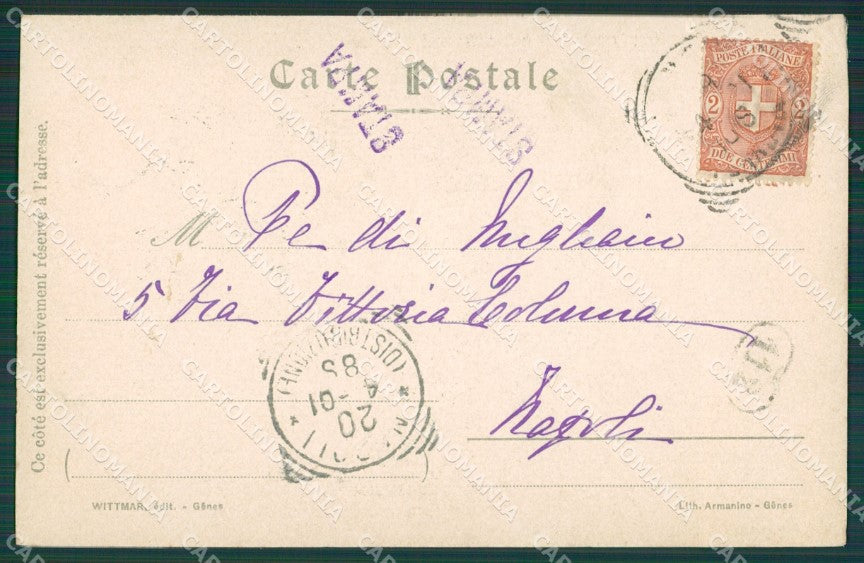 Carte Postale
STAMPA
STAMPA
POSTE ITALIANE
2 2
DUE CENTESIMI
Ce côté est exclusivement réservé à l'adresse.
M Pe di
5 Via Vittoria Colonna
Napoli
112
(DISTRIBUZIONE)
8S
4
20 -01
NAPOLI
WITTMAR, édit. - Gênes
Lith. Armanino - Gênes
CARTOLINOMANIA